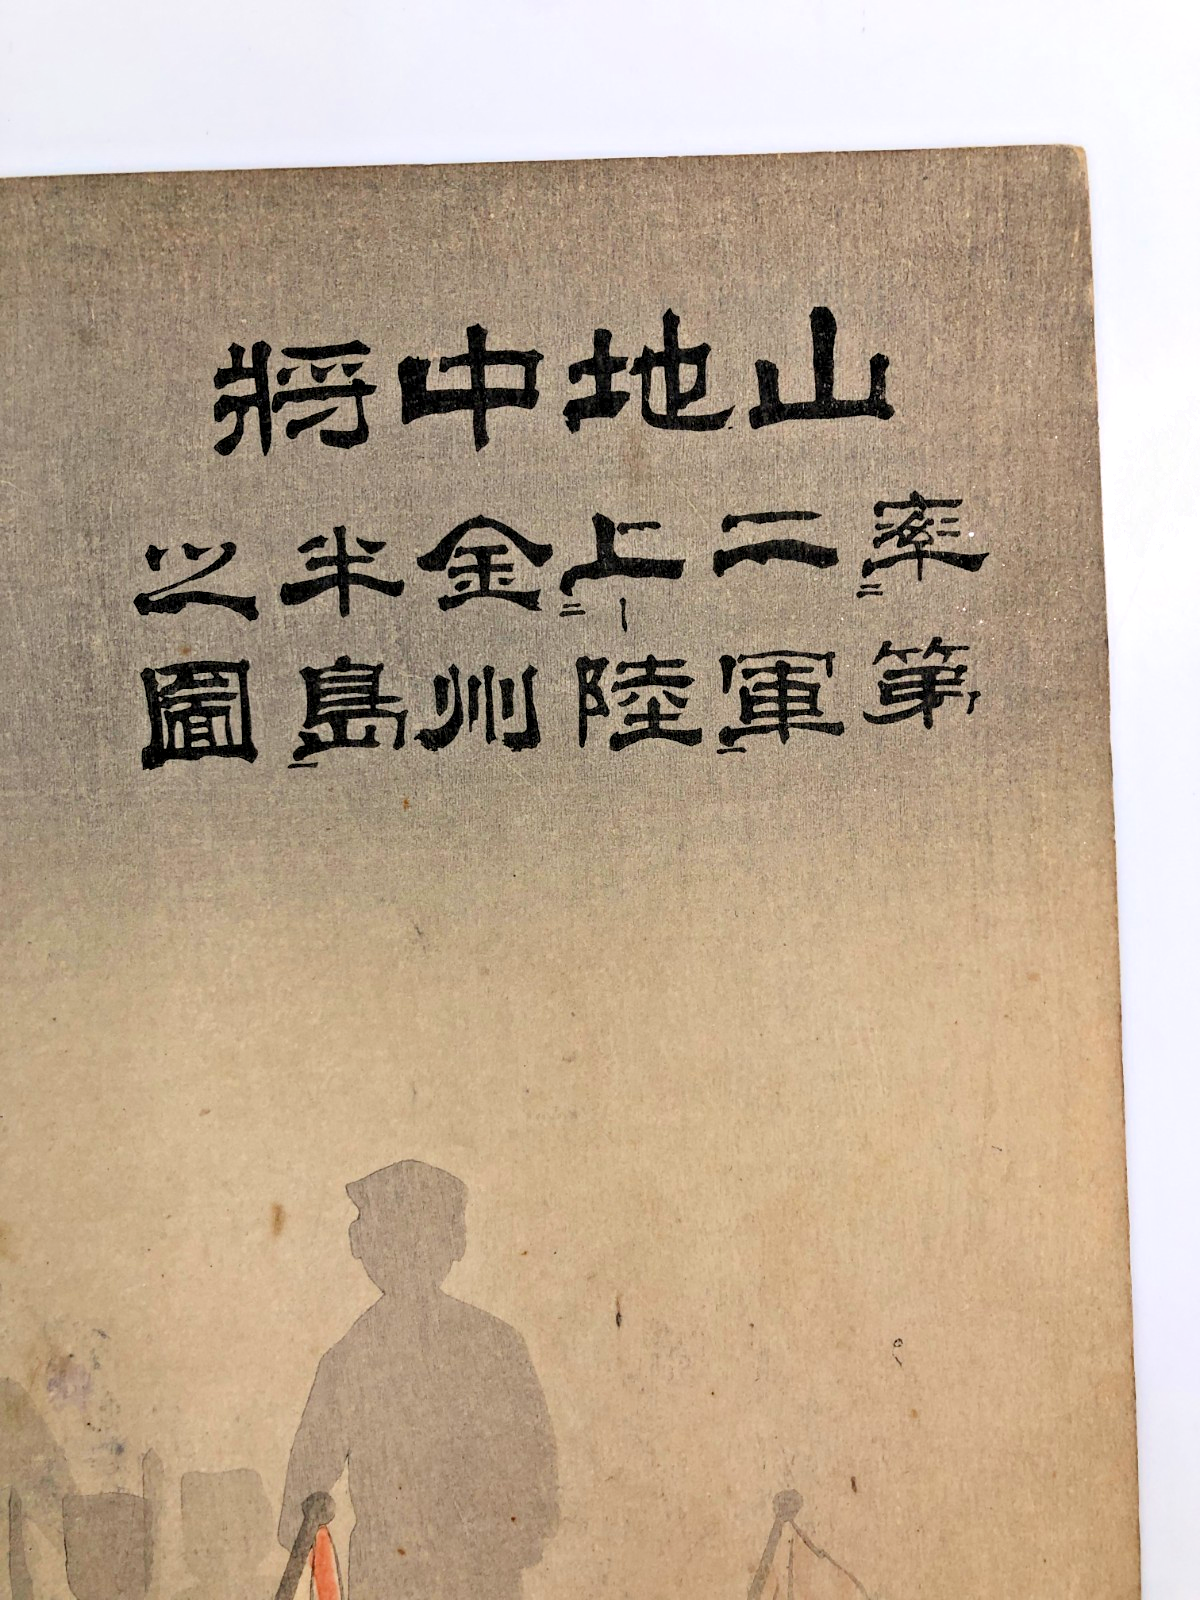 山地中將
率第
二軍
上陸
金州
半島
之圖